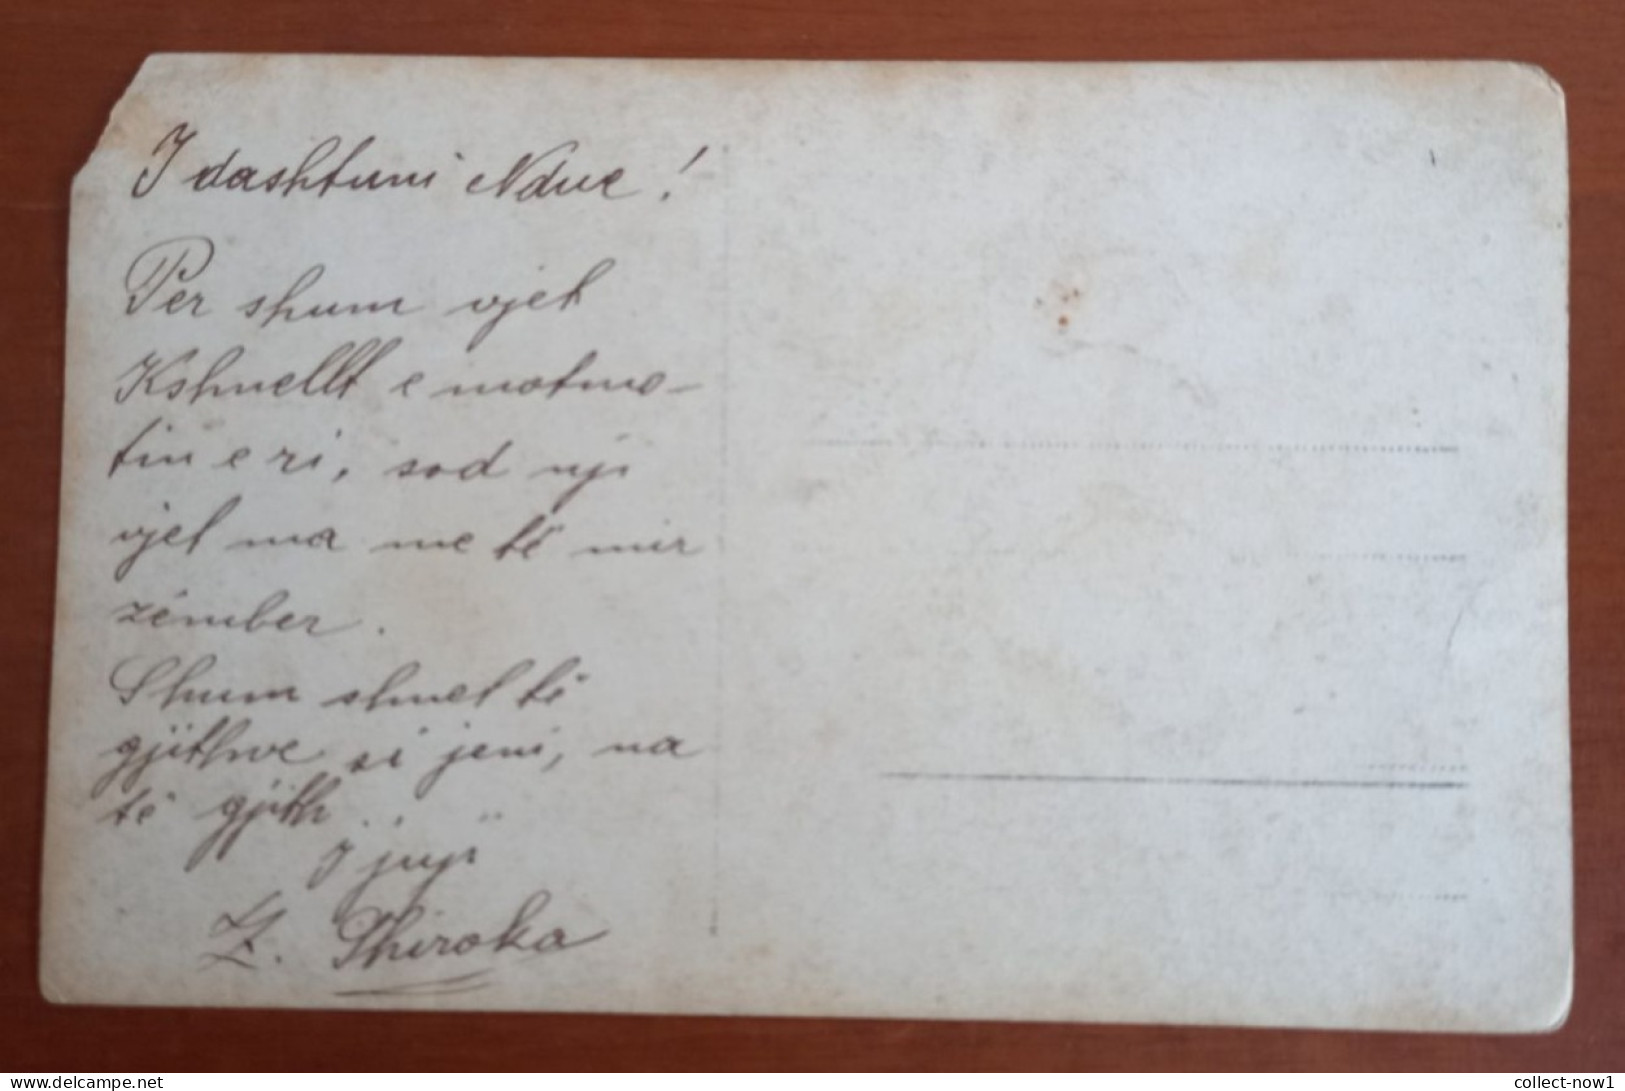 I dashtuni Ndue!
Per shum vjet
Kshnellt e motmo-
tin e ri, sod nji
vjet ma me të mir
zêmber.
Shum shnet të
gjithve si jeni, na
të gjith..
I juji
Z. Shiroka
www.delcampe.net
collect-now1